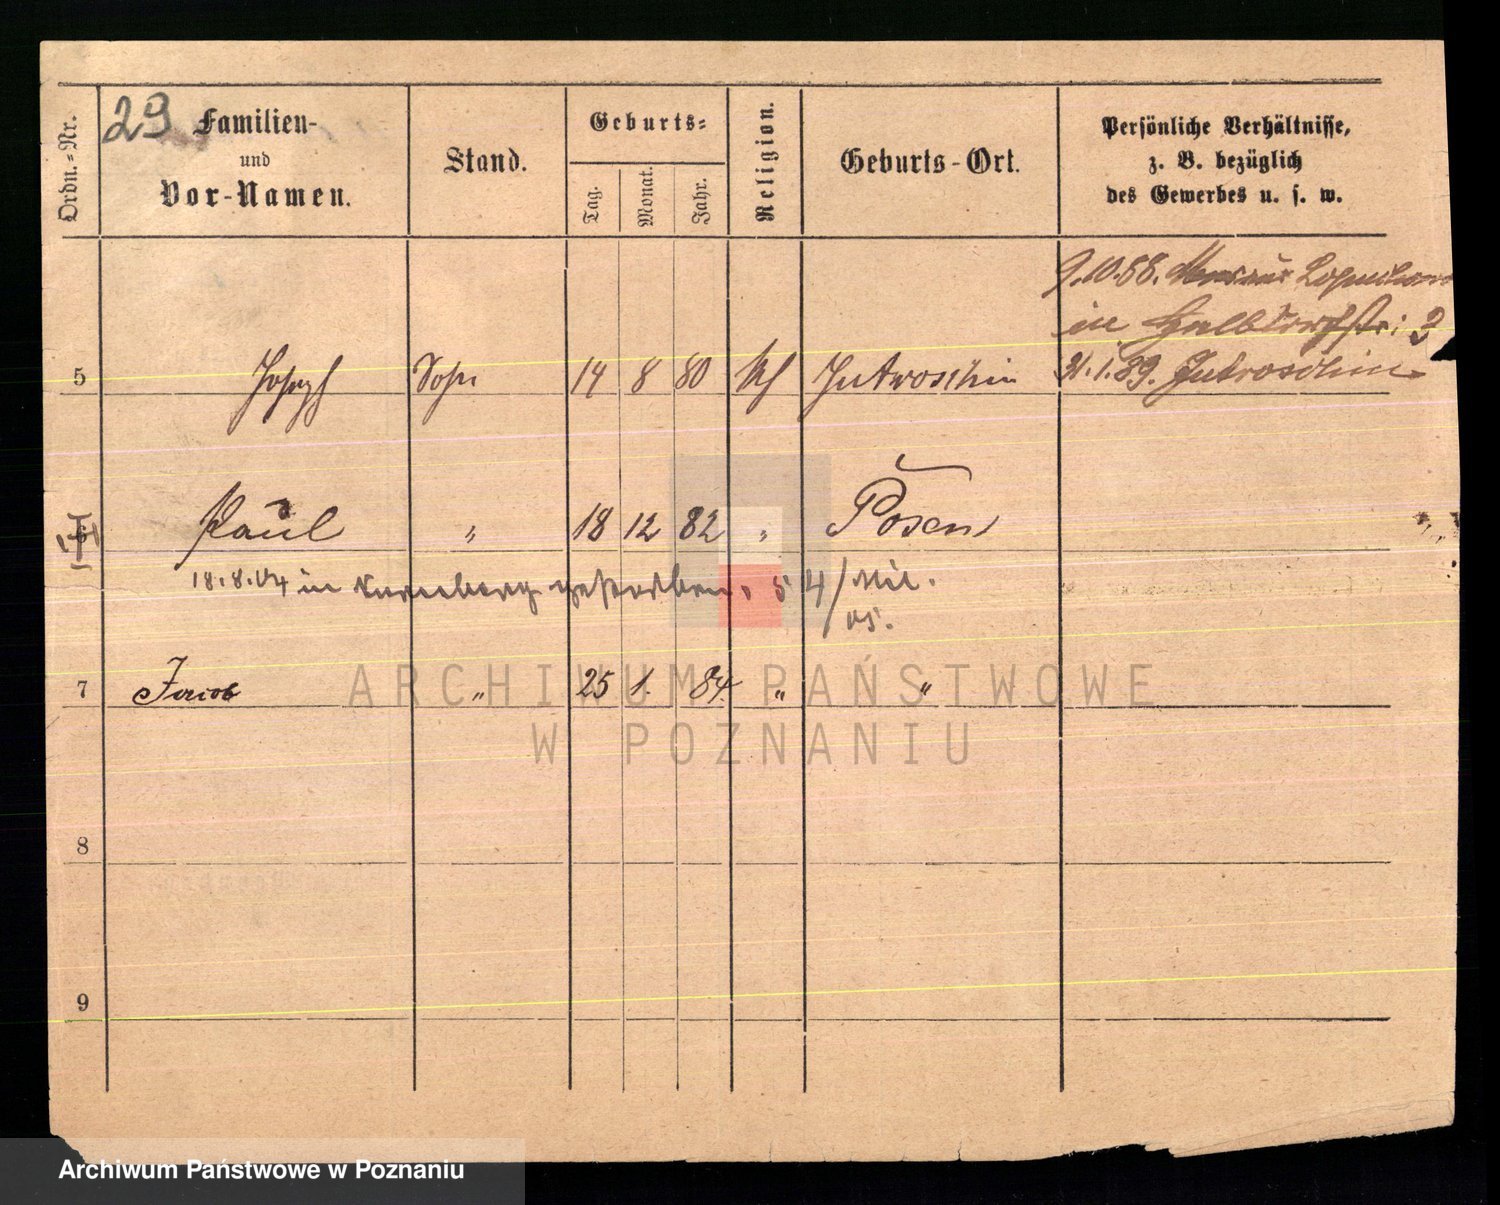 29
Ordn.-Nr.
Familien-
und
Vor-Namen.
Stand.
Geburts-
Tag.
Monat.
Jahr.
Religion.
Geburts-Ort.
Persönliche Verhältnisse,
z. B. bezüglich
des Gewerbes u. s. w.
9.10.88.
in Halbdorfstr: 3
5 Joseph Sohn 14 8 80 kth Jutroschin 21.1.89. Jutroschin
6 Paul " 18 12 82 " Posen
18.8.04 in gestorben. 54/Mil.
05.
7 Jacob " 25 1. 84. " "
8
9
ARCHIWUM PAŃSTWOWE
W POZNANIU
Archiwum Państwowe w Poznaniu